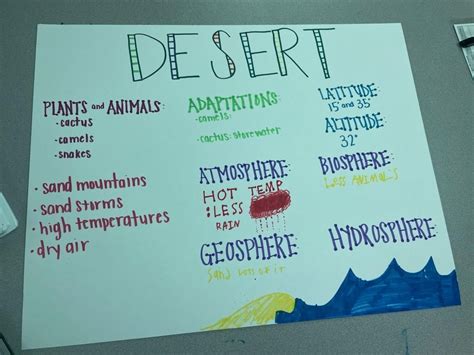 DESERT
PLANTS and ANIMALS:
-cactus
-camels
-snakes
• sand mountains
• sand storms
• high temperatures
• dry air
ADAPTATIONS:
-camels:
-cactus: store water
ATMOSPHERE:
HOT TEMP
:LESS
RAIN
GEOSPHERE:
Sand lots of it
LATITUDE:
15° and 35°
ALTITUDE:
32°
BIOSPHERE:
LESS ANIMALS
HYDROSPHERE: